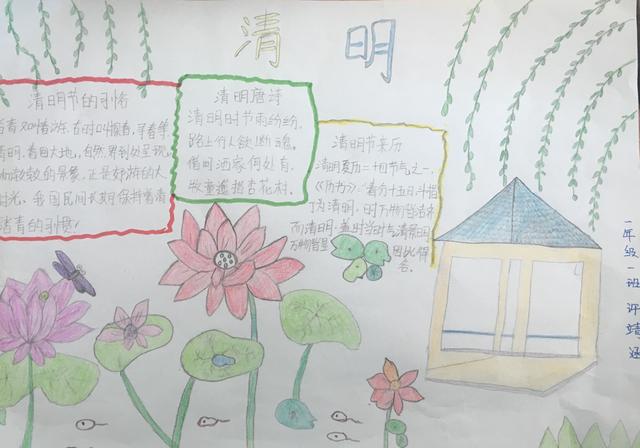 清明
清明节的习俗
踏青又叫春游,古时叫探春,寻春等
清明,春回大地,自然界到处呈现
勃勃的景象,正是郊游的大
时光,我国民间长期保持着清
踏青的习惯!
清明唐诗
清明时节雨纷纷,
路上行人欲断魂。
借问酒家何处有,
牧童遥指杏花村。
清明节来历
清明夏历二十四节气之一,
《历书》:春分十五日,斗指
丁为清明,时万物皆洁齐
而清明,盖时当气清景明
万物皆显 因此得
名。
一年级一班 许婧涵